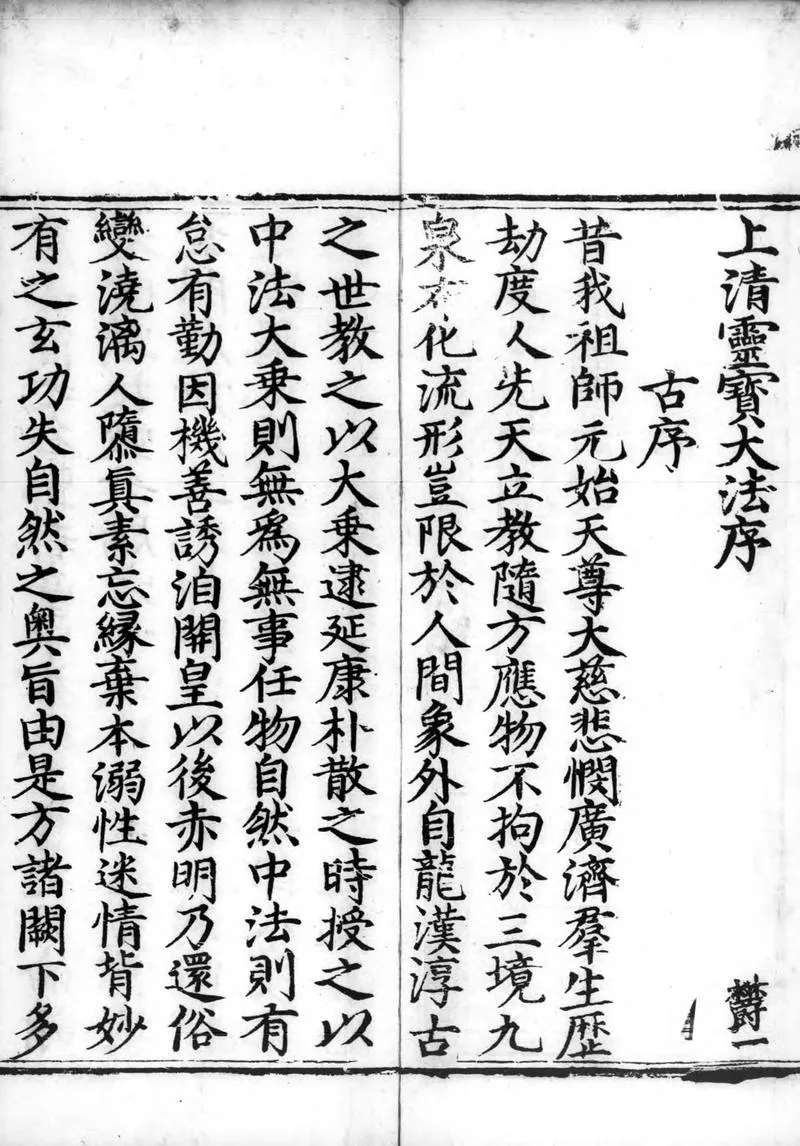 上清靈寶大法序
欝一
古序
昔我祖師元始天尊大慈悲憫廣濟羣生歷
劫度人先天立教隨方應物不拘於三境九
泉布化流形豈限於人間象外自龍漢淳古
之世教之以大乗逮延康朴散之時授之以
中法大乗則無爲無事任物自然中法則有
怠有勤因機善誘洎開皇以後赤明乃還俗
變澆漓人隳眞素忘縁棄本溺性迷情背妙
有之玄功失自然之奥旨由是方諸闕下多